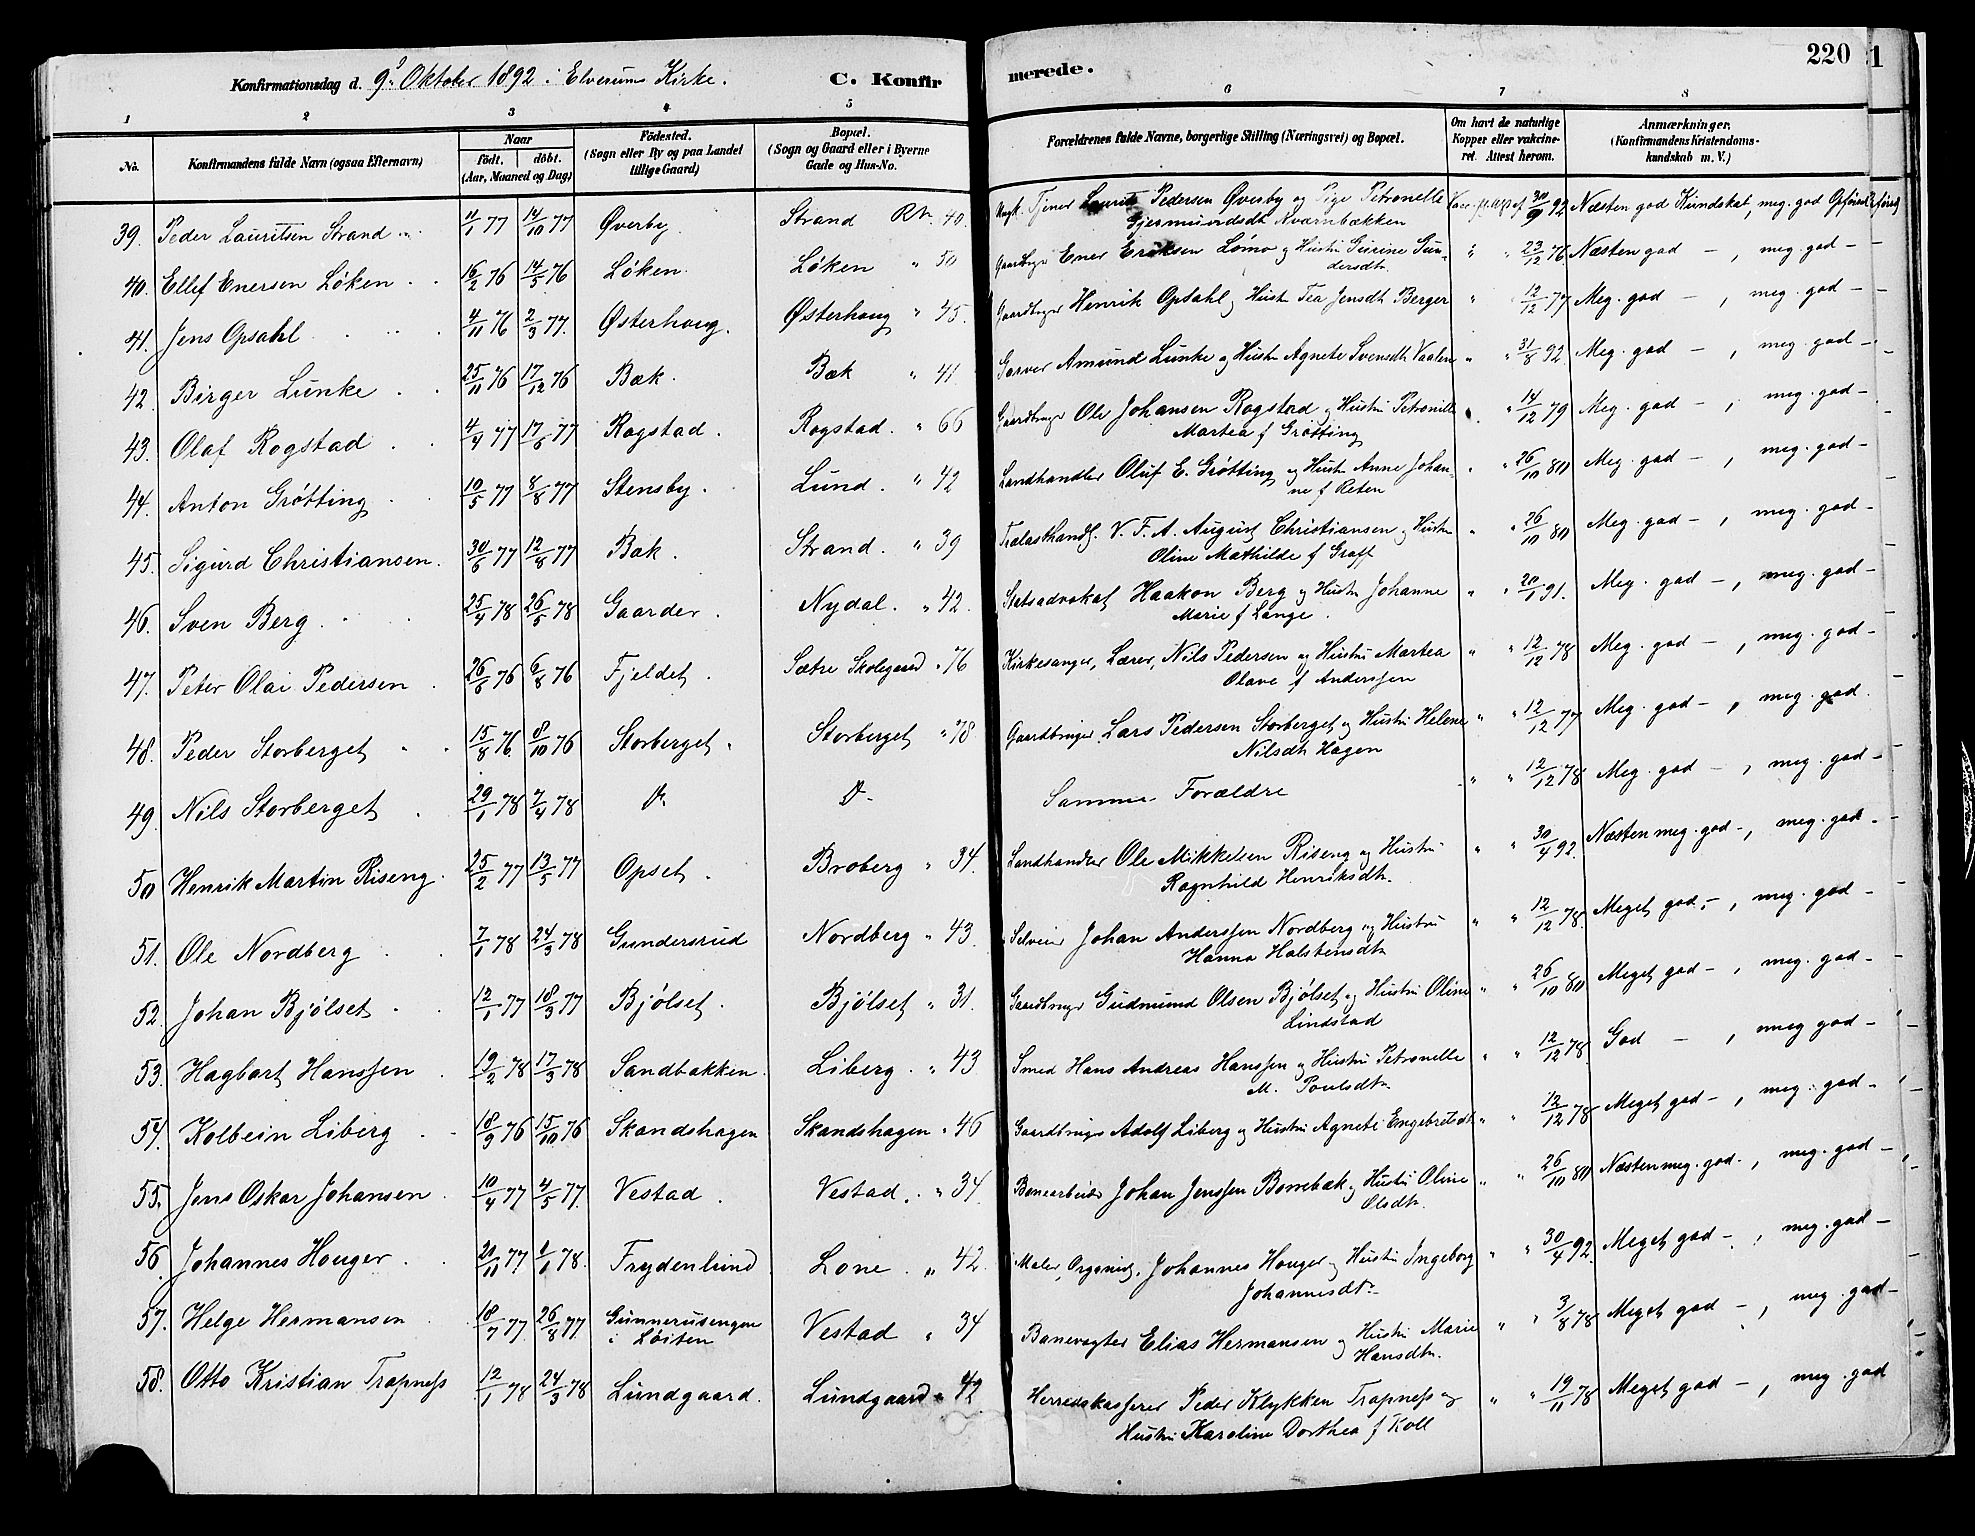 220
1
Konfirmationsdag d. 9de Oktober 1892 i Elverums Kirke.
C. Konfirmerede.
1 2 3 4 5 6 7 8
No.
Konfirmandens fulde Navn (ogsaa Efternavn)
Naar
født. døbt.
(Aar, Maaned og Dag)
Fødested.
(Sogn eller By og paa Landet
tillige Gaard)
Bopæl.
(Sogn og Gaard eller i Byerne
Gade og Hus-No.
Forældrenes fulde Navne, borgerlige Stilling (Næringsvei) og Bopæl.
Om havt de naturlige
Kopper eller vakcine-
ret. Attest herom.
Anmærkninger.
(Konfirmandens Kristendoms-
kundskab m. V.)
39. Peder Lauritsen Strand 4/1 77 14/10 77 Øverby Strand 40 Ungk. Tjener Laurits Pedersen Øvesby og Pige Petronelle 30/9 92 Næsten god Kundskab, meg. god Opførsel
Gjermundsdt Kværnbækken
40. Ellef Enersen Løken 16/2 76 14/5 76 Løken. Løken " 50 Gaardbrgr Ener Eriksen Lømo og Hustru Gurine Gun- " " 23/12 76 Næsten god — , meg. god —
dersdtr
41. Jens Opsahl 4/11 76 2/3 77. Østerhaug. Østerhaug " 45. Gaardbrger Henrik Opsahl og Hustr Tea Jensdt Berger " 12/12 77 Meg. god — , meg. god —
42. Birger Lunke 25/11 76 17/12 76 Bæk. Bæk " 41. Garver Amund Lunke og Hustr Agnete Svensdt Vaalen " " 31/8 92 Meg. god — , meg. god —
43. Olaf Rogstad 4/4 77 17/6 77 Rogstad. Rogstad. " 66 Gaardbrger Ole Johansen Rogstad og Hustru Petronille " 14/12 79 Meg. god — , meg. god —
Martea f Grøtting
44. Anton Grøtting 10/5 77 8/8 77 Stensby. Lund. " 42 Landhandler Oluf E. Grøtting og Hustr Anne Johan- " " 26/10 80 Meg. god — , meg. god —
ne f Reten
45. Sigurd Christiansen. 30/6 77 12/8 77 Bæk. Strand. " 39 Trælasthandl. V. F. A. August Christiansen og Hustr " " 26/10 80 Meg. god — , meg. god —
Oline Mathilde f Graff
46. Sven Berg. 25/4 78 26/5 78 Gaarder. Nydal. " 42. Statsadvokat Haakon Berg og Hustr Johanne " " 20/1 91. Meg. god — , meg. god —
Marie f Lange.
47. Peter Olai Pedersen 26/6 76 6/8 76 Fjeldet. Sætre Skolegaard " 76 Kirkesanger, Lærer, Nils Pedersen og Hustru Martea " " 12/12 78 Meg. god — , meg. god —
Olave f Anderssen
48. Peder Storberget 15/8 76. 8/10 76 Storberget. Storberget " 78 Gaardbruger Lars Pedersen Storberget og Hustru Helene " " 12/12 77 Meg. god — , meg. god.
Nilsdtr Hagen
49. Nils Storberget 29/1 78 7/4 78 Samme Forældre " " 12/12 78 Meg. god — , meg. god —
50 Henrik Martin Riseng. 25/2 77 13/5 77 Opset Broberg " 34. Landhandler Ole Mikkelsen Riseng og Hustru " " 30/4 92. Næsten meg. god —, meg. god —
Ragnhild Henriksdtr.
51. Ole Nordberg 7/1 78 24/3 78 Gundersrud Nordberg " 43. Selveier Johan Anderssen Nordberg og Hustru " " 12/12 78. Meget god — , meg. god —
Hanna Halstensdtr
52. Johan Bjølset 12/1 77 18/3 77 Bjølset. Bjølset " 31. Gaardbrger Gudmund Olsen Bjølset og Hustru Oline " " 26/10 80 Meget god — , meg. god —
Lindstad
53. Hagbart Hanssen 19/2 78 17/3 78 Sandbakken. Liberg. " 43 Smed Hans Andreas Hanssen og Hustru Petronelle " " 12/12 78. God — , meg god —
M. Poulsdtr
54. Kolbein Liberg 18/9 76 15/10 76 Skandshagen Skandshagen " 46 Gaardbrugr Adolf Liberg og Hustru Agnete Engebretsdtr " " 12/12 78 Meget god — , meg. god —
55. Jens Oskar Johansen 10/4 77 4/5 77. Vestad. Vestad. " 34. Banearbeider Johan Jenssen Borrebæk og Hustru Oline " " 26/10 80 Næsten meg. god —, meg. god —
Olsdtr.
56. Johannes Houger 20/11 77 1/1 78. Frydenlund Lone. " 42. Maler, Organist, Johannes Houger og Hustru Ingeborg " " 30/4 92. Meget god — , meg. god —
Johannesdtr
57. Helge Hermansen 18/7 77. 26/8 77 Gunnerusengen Vestad " 34 Banevogter Elias Hermansen og Hustru Marie " " 3/8 78 Meget god — , meg. god —
i Løiten Hansdtr.
58. Otto Kristian Trapness 12/1 78 24/3 78 Lundgaard. Lundgaard " 42 Herredskasserer Peder Klykken Trapness og " " 19/11 78 Meget god — , meg. god
Hustru Karoline Dorthea f Koll